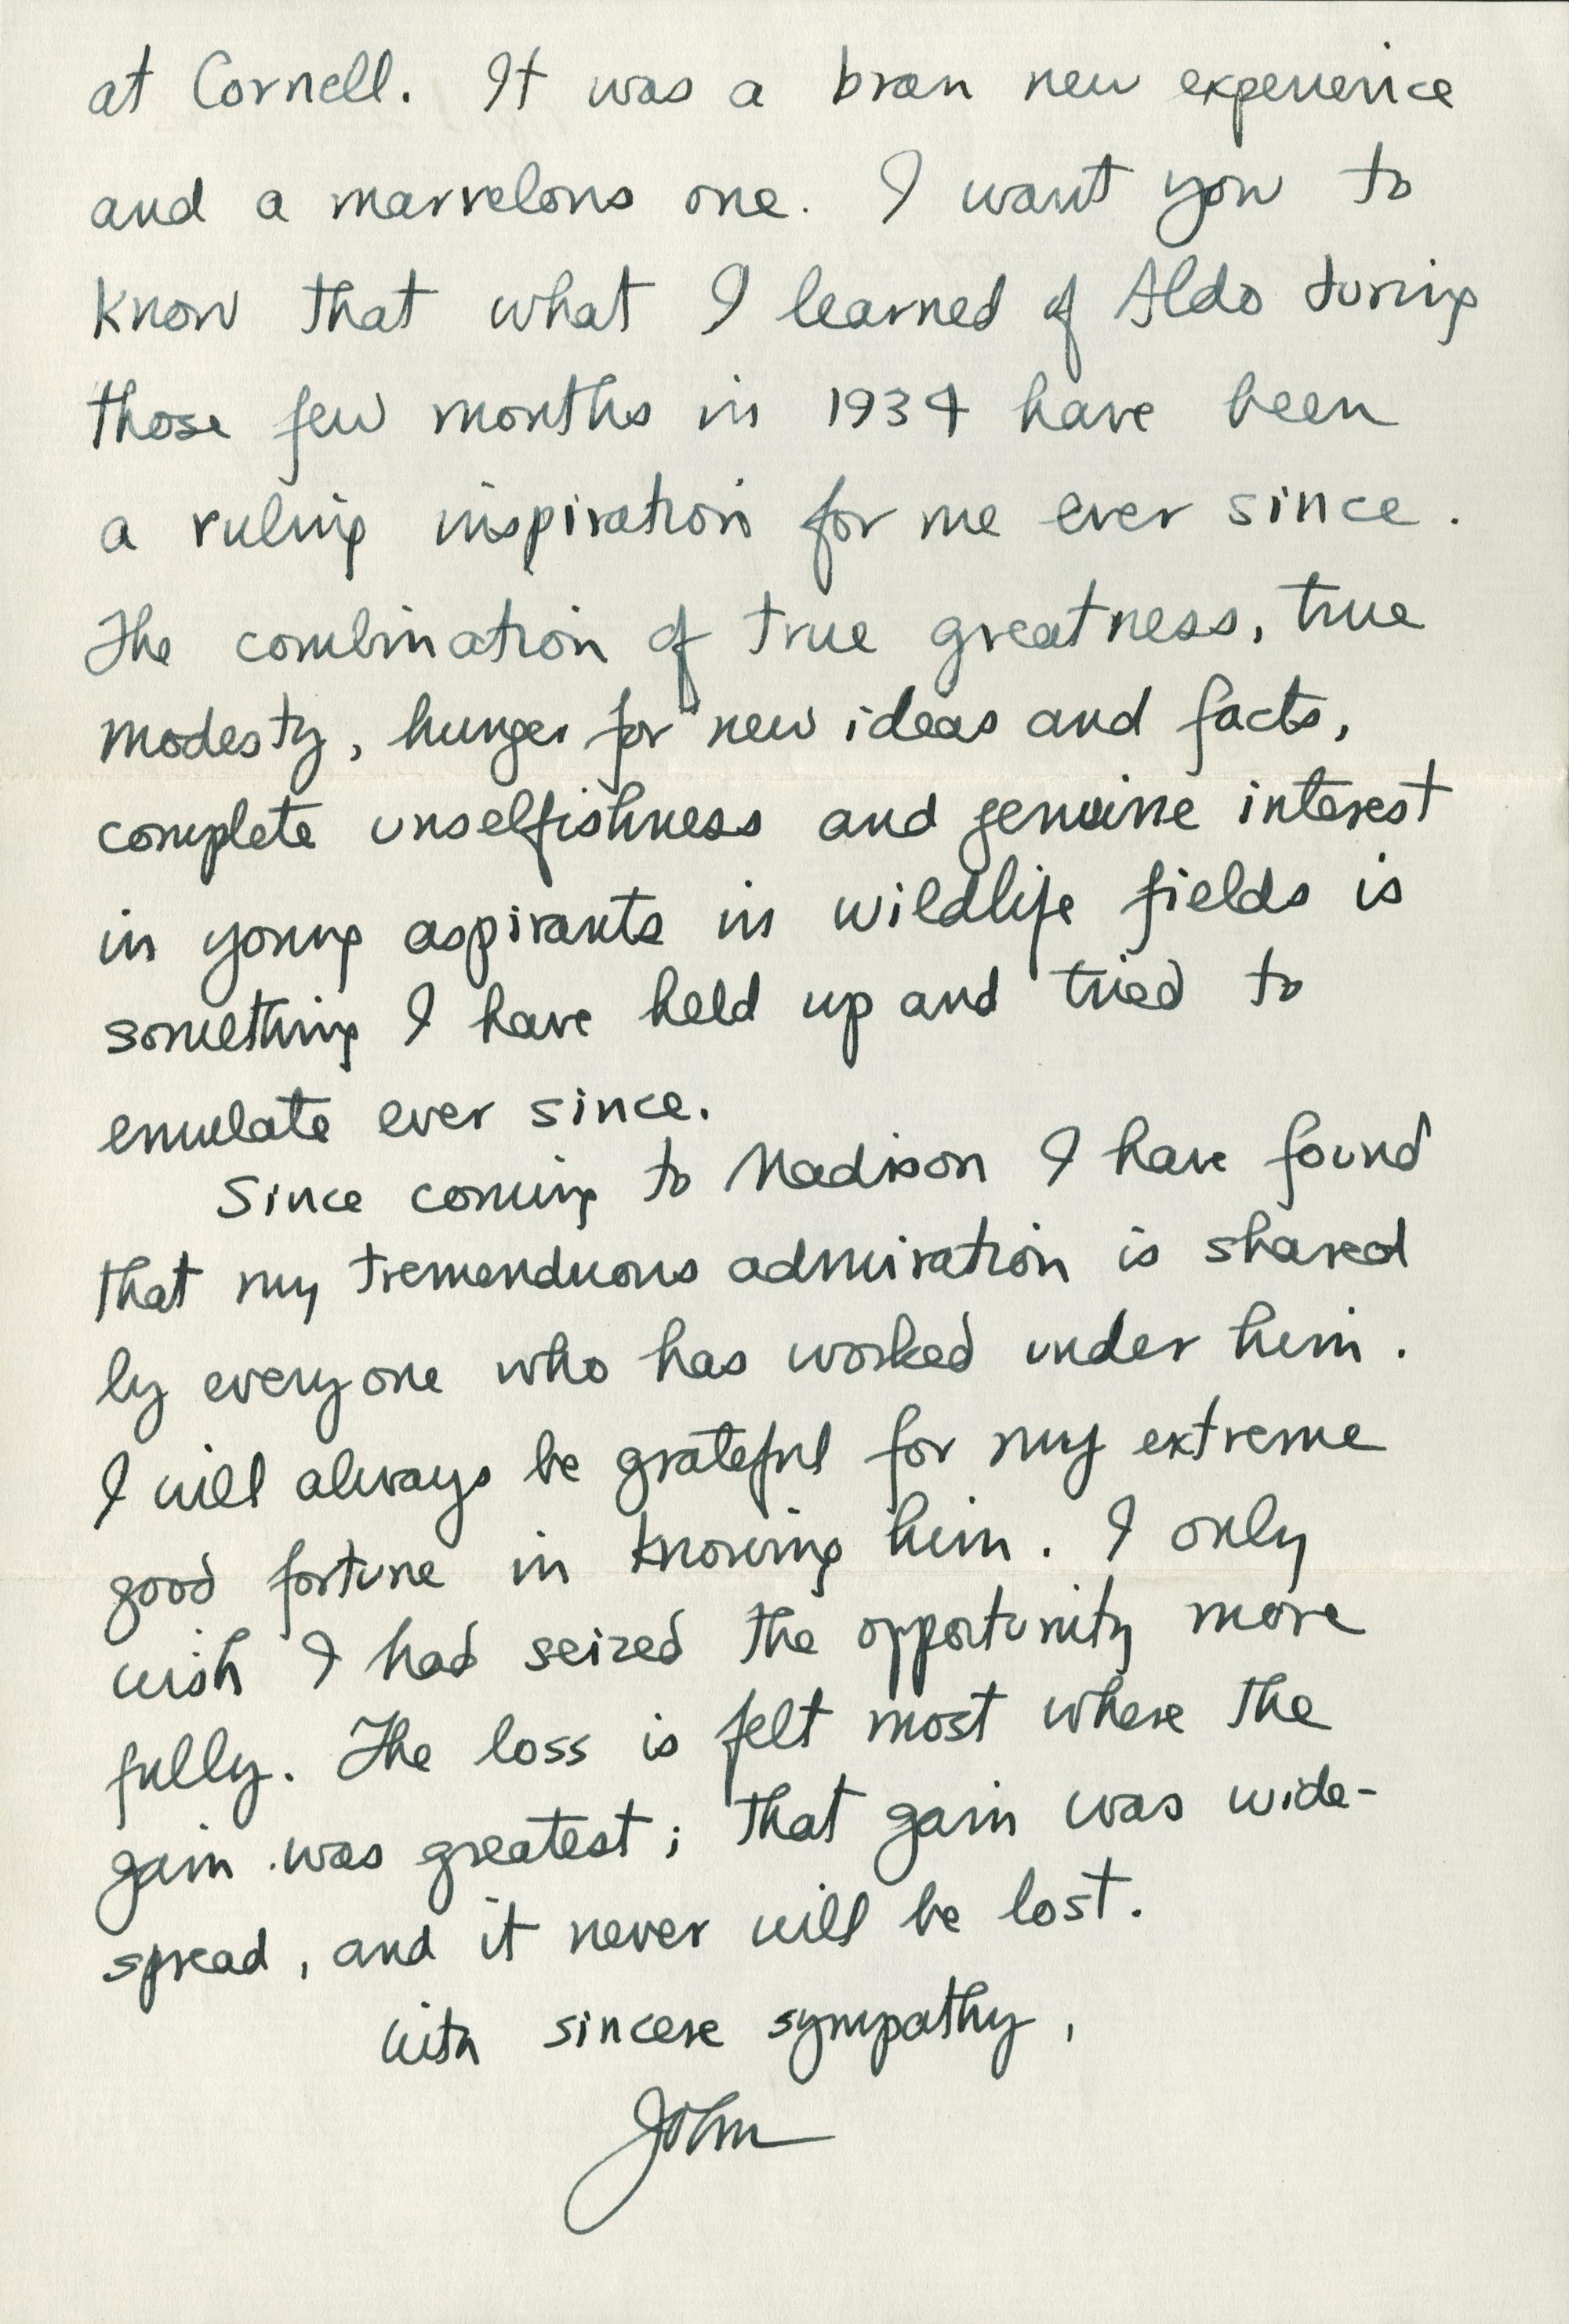 at Cornell. It was a bran new experience
and a marvelous one. I want you to
know that what I learned of Aldo during
those few months in 1934 have been
a ruling inspiration for me ever since.
The combination of true greatness, true
modesty, hunger for new ideas and facts,
complete unselfishness and genuine interest
in young aspirants in wildlife fields is
something I have held up and tried to
emulate ever since.
Since coming to Madison I have found
that my tremenduous admiration is shared
by everyone who has worked under him.
I will always be grateful for my extreme
good fortune in knowing him. I only
wish I had seized the opportunity more
fully. The loss is felt most where the
gain was greatest; that gain was wide-
spread, and it never will be lost.
With sincere sympathy,
John